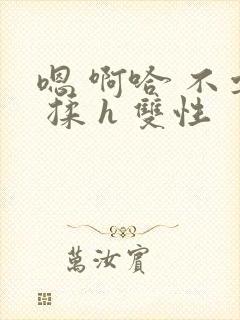 嗯 啊哈 不
揉 h 雙性
萬汝賓